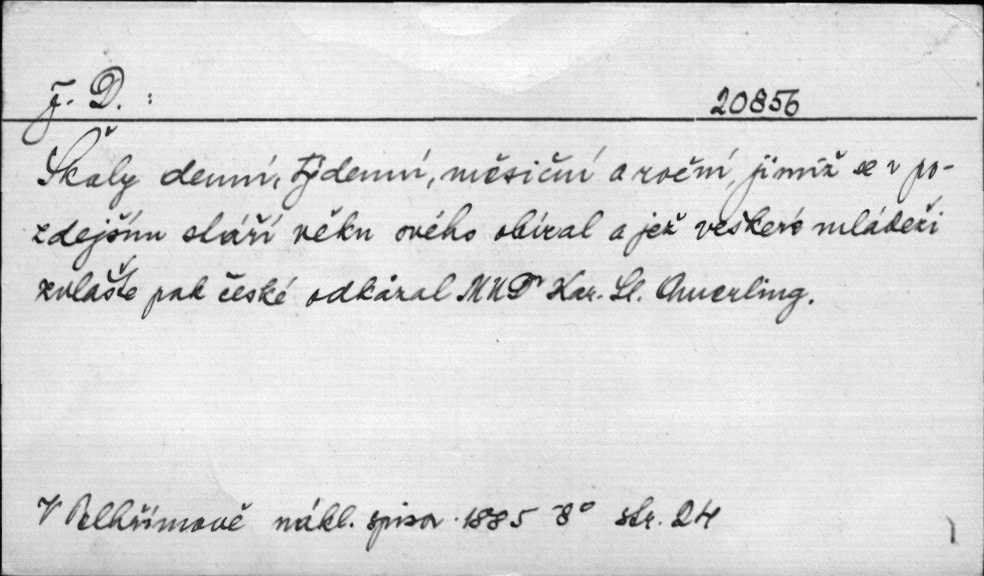 J. D. :
20856
Škály denní, týdenní, měsíční a roční, jimiž se v po-
zdejším stáří věku svého obíral a jež veškeré mládeži
zvláště pak české odkázal MUDr Kar. Sl. Amerling.
V Pelhřimově nákl. spisov. 1885 8° str. 24